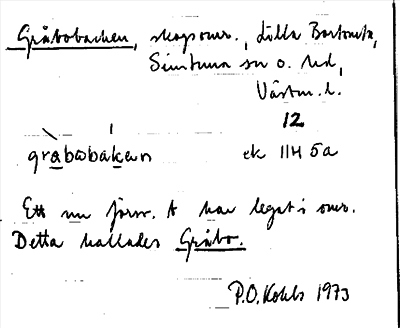 Gråbobacken, skogsomr., Lilla Bärtomta,
Simtuna sn o. hd,
Västm. l.
12
gråbobakɛn ek 11H 5a
Ett nu försv. t har legat i omr.
Detta kallades Gråbo.
P.O. 1973